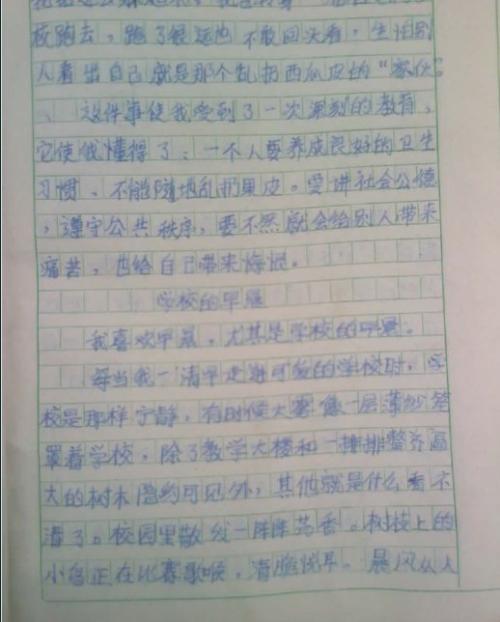 疲跑去，跑了很远也不敢回头看，生怕别
人看出自己就是那个乱扔西瓜皮的“家伙”
、这件事使我受到了一次深刻的教育，
它使我懂得了：一个人要养成良好的卫生
习惯、不能随地乱扔果皮。要讲社会公德
，遵守公共秩序，要不然就会给别人带来
痛苦，也给自己带来悔恨。
学校的早晨
我喜欢早晨，尤其是学校的早晨。
每当我一清早走进可爱的学校时，学
校是那样宁静，有时候大雾像一层薄纱笼
罩着学校，除了教学大楼和一排排整齐高
大的树木隐约可见外，其他就是什么看不
清了。校园里散发一阵阵芳香。树枝上的
小鸟正在比赛歌喉，清脆悦耳。晨风从人